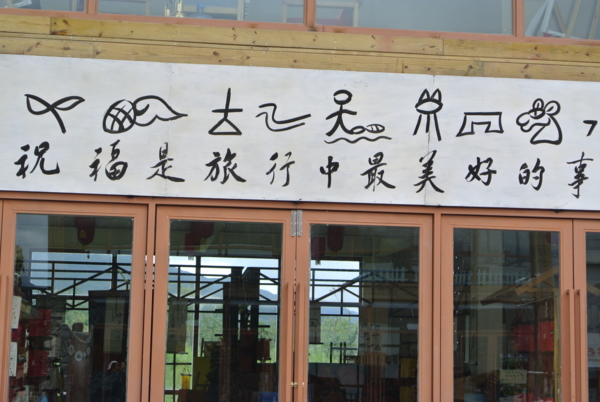 祝福是旅行中最美好的事